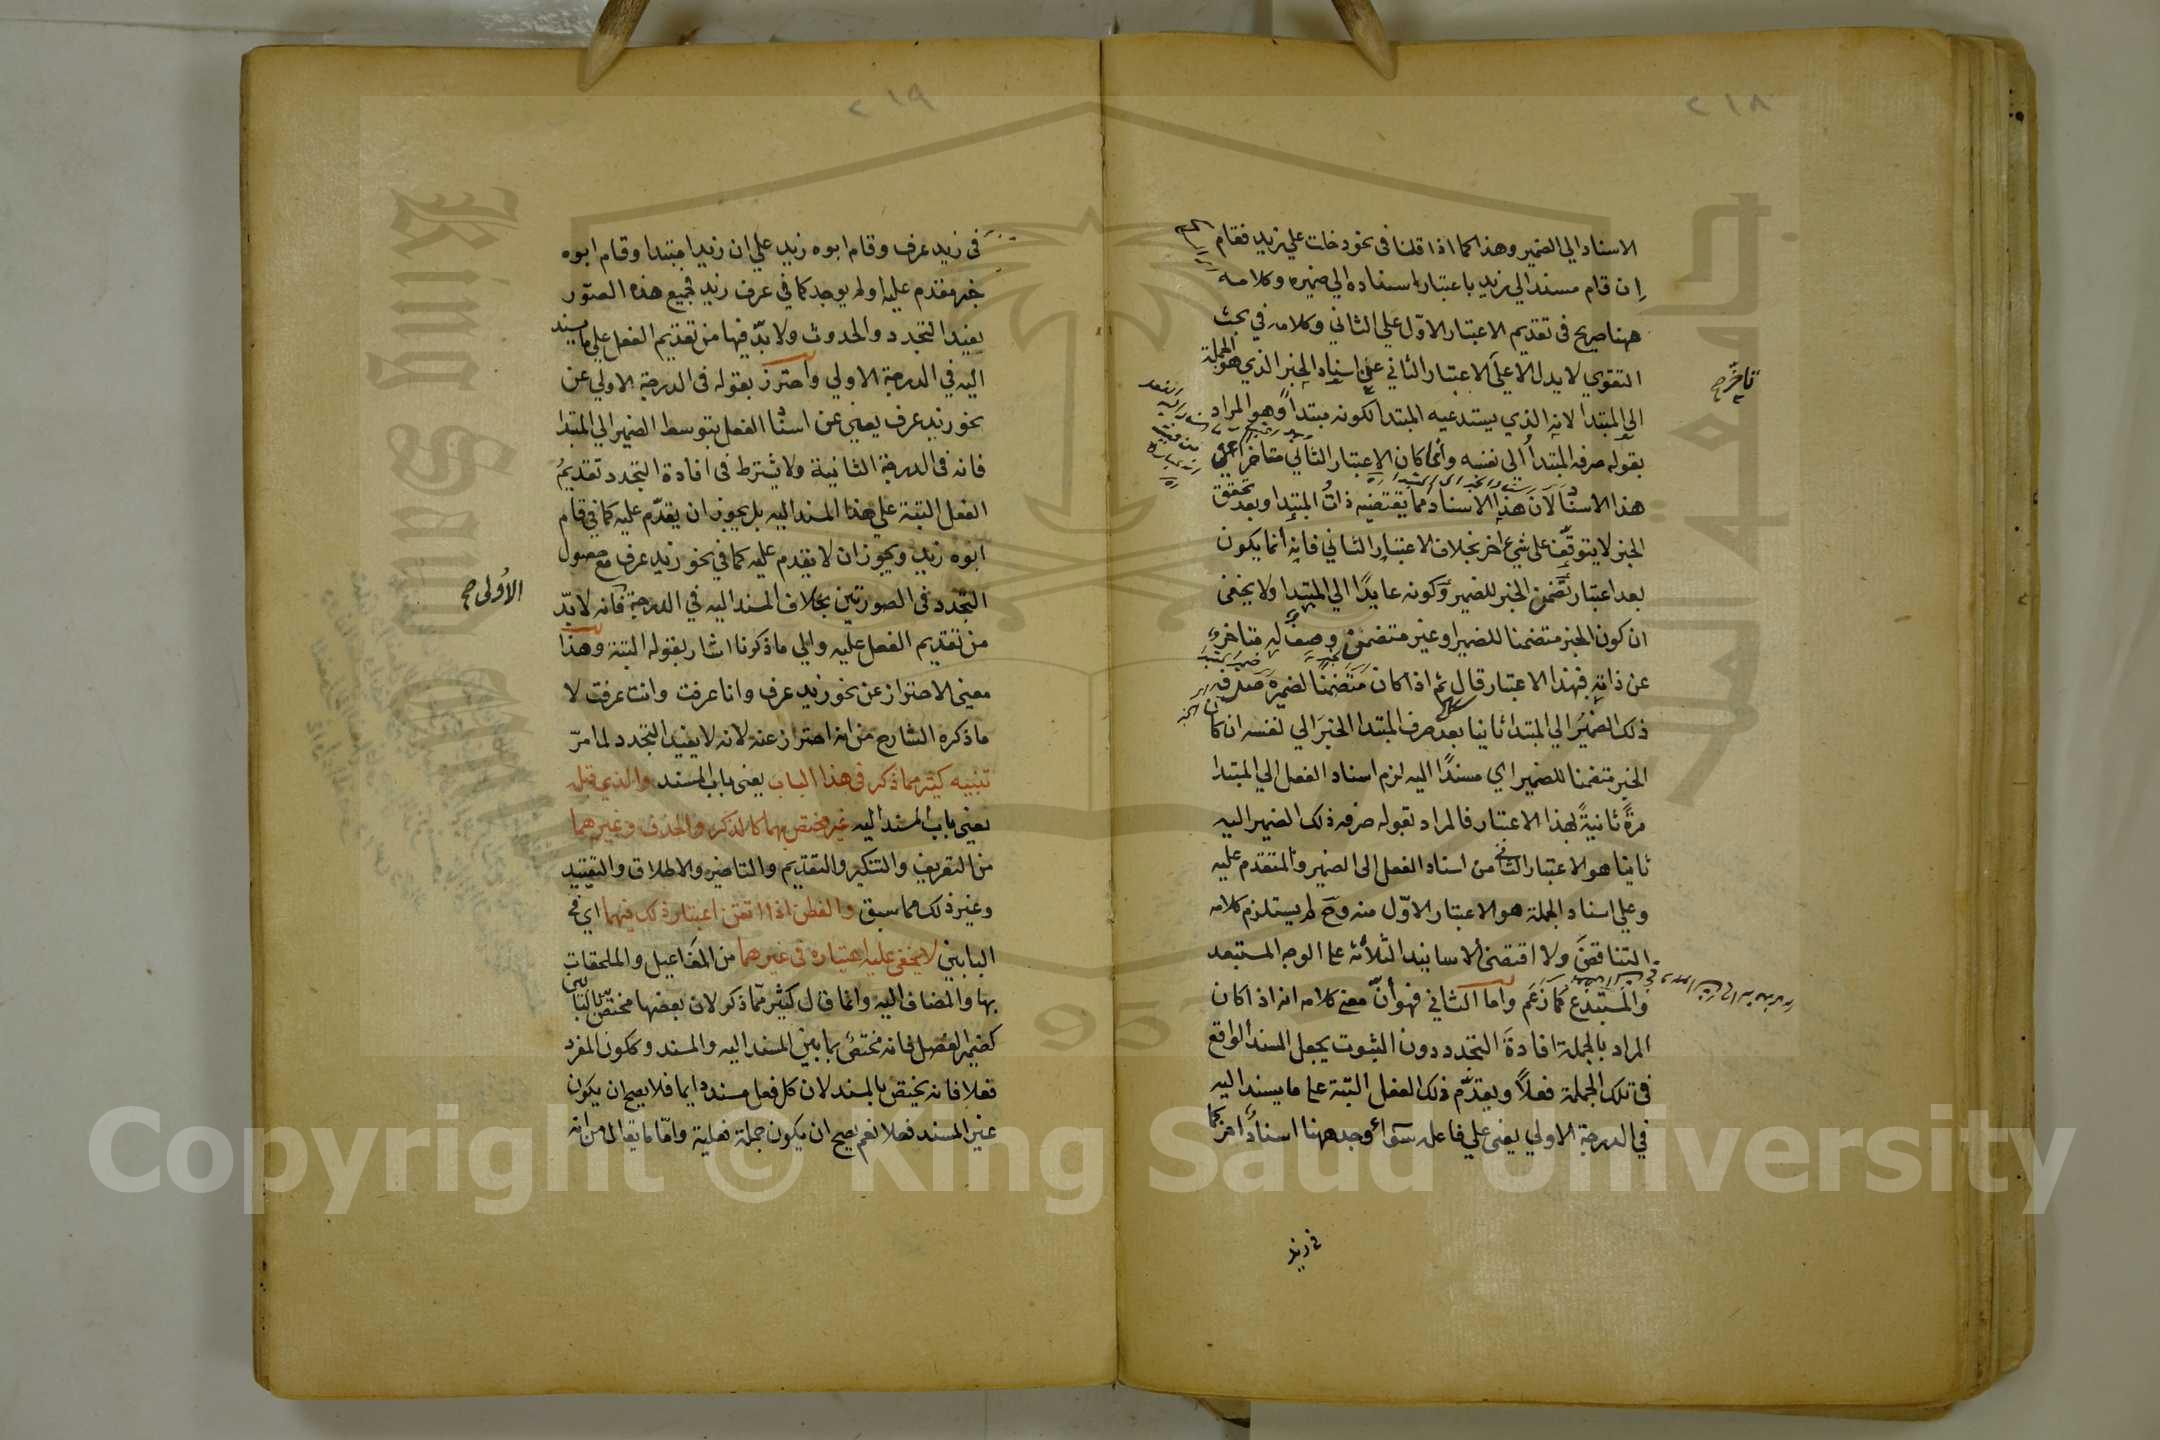 ٢١٨
الاسناد الي الضمير وهذا كما اذا قلنا في نحو دخلت علي زيد فقام
ان قام مسند الي زيد باعتبار اسناده الي ضميره وكلامه
ههنا صريح في تقديم الاعتبار الاوّل علي الثاني وكلامه في بحث
التقوي لا يدل الا علي الاعتبار الثاني علي اسناد الخبر الذي هو الجملة
الي المبتدا لانه الذي يستدعيه المبتدا لكونه مبتدأ وهو المراد
بقوله صرفه المبتدأ الي نفسه وانما كان الاعتبار الثاني متاخرا عن
هذا الاسناد لان هذا الاسناد مما يقتضيه ذات المبتدا وبعد تحقق
الخبر لا يتوقف على شيء اخر بخلاف الاعتبار الثاني فانه انما يكون
بعد اعتبار تضمن الخبر للضمير وكونه عايدًا الي المبتدا ولا يخفى
ان كون الخبر متضمنا للضمير او غير متضمن وصف له متاخر
عن ذاته فبهذا الاعتبار قال ثم اذا كان متضمنا لضميره صرفه
ذلك الضمير الي المبتدا ثانيا بعد صرف المبتدا الخبر الي نفسه ان كان
الخبر متضمنا للضمير اي مسندًا اليه لزم اسناد الفعل الي المبتدا
مرةً ثانيةً بهذا الاعتبار فالمراد بقوله صرفه ذلك الضمير اليه
ثانيا هو الاعتبار الثاني من اسناد الفعل الى الضمير والمتقدم عليه
وعلي اسناد الجملة هو الاعتبار الاوّل منه وح لم يستلزم كلامه
التناقض ولا اقتضى الاسانيد الثلاثة على الوجه المستبعد
والمستبدع كما زعم واما الثاني فهو أنّ معنى كلامه انه اذا كان
المراد بالجملة افادة التجدد دون الثبوت يجعل المسند الواقع
في تلك الجملة فعلاً ويقدّم ذلك الفعل البتة على ما يسند اليه
في الدرجة الاولي يعنى علي فاعله سوآء وجد ههنا اسناد اخر كما
في زيد
تاخر صح
٢١٩
في زيد عرف وقام ابوه زيد علي ان زيدا مبتدا وقام ابوه
خبر مقدم عليه او لم يوجد كما في عرف زيد فجميع هذه الصوّر
يفيد التجدد والحدوث ولا بدّ فيها من تقديم الفعل علي ما يسند
اليه في الدرجة الاولي واحترز بقوله في الدرجة الاولي عن
نحو زيد عرف يعني عن اسناد الفعل بتوسط الضمير الي المبتدا
فانه في الدرجة الثانية ولا يشترط في افادة التجدد تقديم
الفعل البتة علي هذا المسند اليه بل يجوز ان يقدّم عليه كما في قام
ابوه زيد ويجوز ان لا يقدم عليه كما في نحو زيد عرف مع حصول
التجدد في الصورتين بخلاف المسند اليه في الدرجة فانه لا بدّ
الاولى صح
من تقديم الفعل عليه والي ما ذكرنا اشار بقوله البتة وهذا
معنى الاحتراز عن نحو زيد عرف وانا عرفت وانت عرفت لا
ما ذكره الشارح من انه احتراز عنه لانه لا يفيد التجدد لما مرّ
تنبيه كثير مما ذكر في هذا الباب يعنى باب المسند والذي قبله
يعنى باب المسند اليه غير مختص بهما كالذكر والحذف وغيرهما
من التعريف والتنكير والتقديم والتاخير والاطلاق والتقييد
وغير ذلك مما سبق والفطن اذا اتقن اعتبار ذلك فيهما اي في
البابين لا يخفى عليه اعتباره في غيرهما من المفاعيل والملحقات
بها والمضاف اليه وانما قال كثير مما ذكر لان بعضها مختص بالبابين
كضمير الفصل فانه مختص بما بين المسند اليه والمسند وككون المفرد
فعلا فانه يختص بالمسند لان كل فعل مسند دايما فلا يصح ان يكون
غير المسند فعلا نعم يصح ان يكون جملة فعلية وامّا ما يقال من انه
Copyright © King Saud University